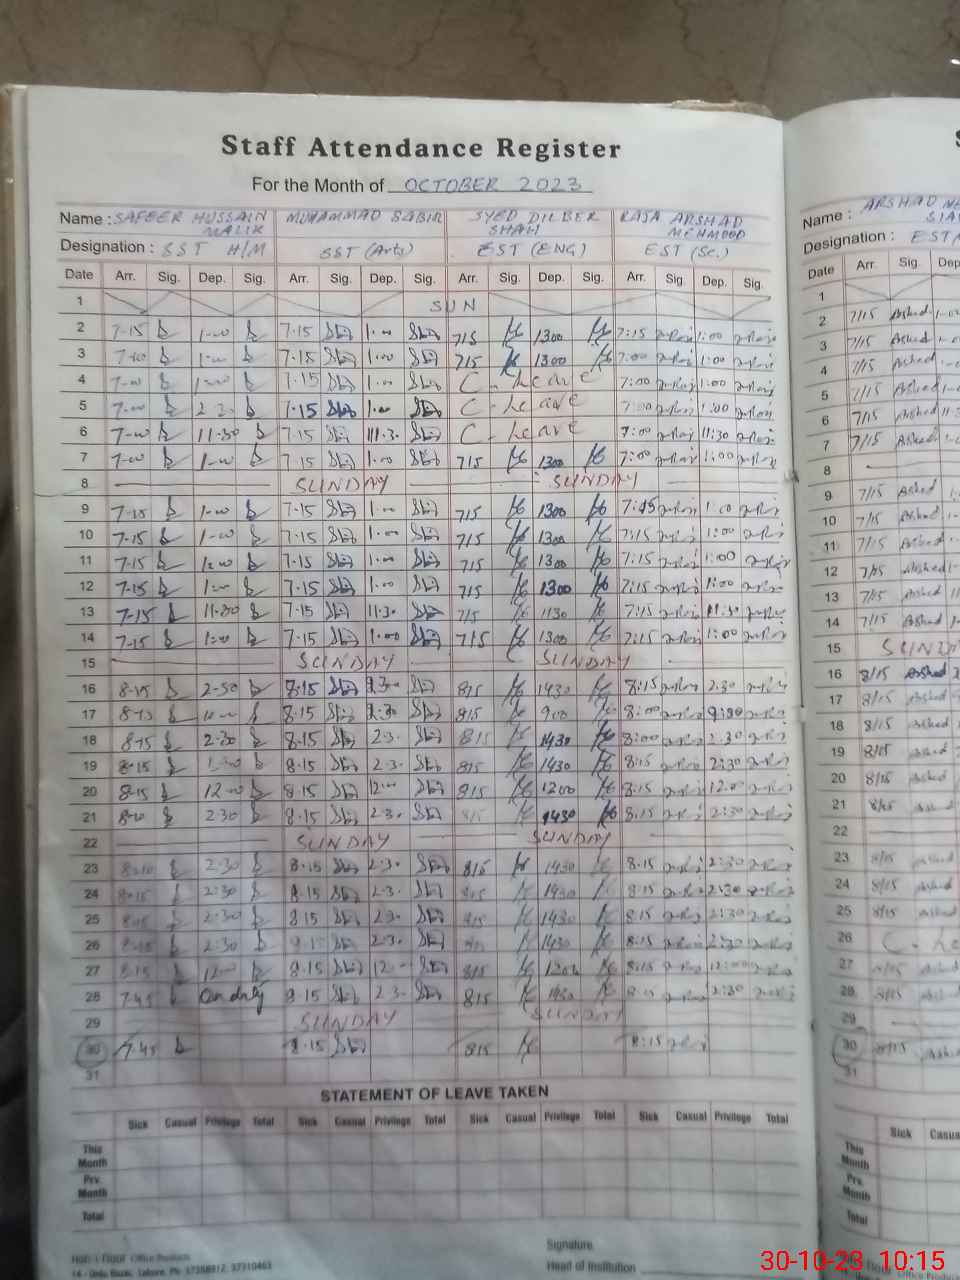 Staff Attendance Register
For the Month of OCTOBER 2023
Name : SAFEER HUSSAIN MALIK MUHAMMAD SABIR SYED DILBER SHAH RAJA ARSHAD MEHMOOD
Designation : SST H/M SST (Arts) EST (ENG) EST (Sc.)
Date Arr. Sig. Dep. Sig. Arr. Sig. Dep. Sig. Arr. Sig. Dep. Sig. Arr. Sig Dep. Sig.
1 SUN
2 7-15 1-00 7.15 1.00 715 1300 7:15 1:00
3 7-00 1-00 7.15 1.00 715 1300 7:00 1:00
4 7-00 1-00 7.15 1.00 C. Leave 7:00 1:00
5 7-00 2.30 7.15 1.00 C. Leave 7:00 1:00
6 7-00 11-30 7.15 11.30 C. Leave 7:00 11:30
7 7-00 1-00 7.15 1.00 715 1300 7:00 1:00
8 SUNDAY SUNDAY
9 7-15 1-00 7.15 1.00 715 1300 7:15 1:00
10 7-15 1-00 7.15 1.00 715 1300 7:15 1:00
11 7-15 1-00 7.15 1.00 715 1300 7:15 1:00
12 7-15 1-00 7.15 1.00 715 1300 7:15 1:00
13 7-15 11-30 7.15 11.30 715 1130 7:15 11:30
14 7-15 1-00 7.15 1.00 715 1300 7:15 1:00
15 SUNDAY SUNDAY
16 8-15 2-30 8.15 2.30 815 1430 8:15 2:30
17 8-15 8.15 2.30 815 900 8:00
18 8-15 2-30 8.15 2.3. 815 1430 8:00 2.30
19 8-15 8.15 2.3. 815 1430 8:15 2:30
20 8-15 12-00 8.15 12.00 815 1200 8.15 12.00
21 2 30 8.15 2.3. 815 1430 8:15 2:30
22 SUNDAY SUNDAY
23 2-30 8.15 2.3. 815 1430 8.15 2:30
24 8-15 2:30 8.15 2.3. 815 1430 8:15 2:30
25 2:30 8.15 2.3. 815 1430 8.15 2:30
26 2:30 2.3. 1430 8.15 2:30
27 8-15 12-00 8.15 12.00 815 1200 8:15 12:00
28 7.45 On duty 8.15 2.3. 815 1430 8:15 2:30
29 SUNDAY SUNDAY
30 7.45 8.15 815 8:15
31
STATEMENT OF LEAVE TAKEN
Sick Casual Privilege Total Sick Casual Privilege Total Sick Casual Privilege Total Sick Casual Privilege Total
This Month
Prv. Month
Total
Signature
Head of Institution
Office Products
14 - Urdu Bazar, Lahore. Ph:
Name : ARSHAD
Designation : EST
Date Arr. Sig.
1
2 7/15 Arshed
3 7/15 Arshed
4 7/15 Arshed
5 7/15 Arshed
6 7/15 Arshed
7 7/15 Arshed
8
9 7/15 Arshed
10 7/15 Arshed
11 7/15 Arshed
12 7/15 Arshed
13 7/15 Arshed
14 7/15 Arshed
15 SUND
16 8/15 Arshed
17 8/15 Arshed
18 8/15 Arshed
19 8/15 Arshed
20 8/15 Arshed
21 8/15 Arshed
22
23 8/15 Arshed
24 8/15 Arshed
25 8/15 Arshed
26 C. Le
27 8/15 Arshed
28 8/15 Arshed
29
30 8/15 Arshed
31
Sick Casua
This Month
Prv. Month
Total
30-10-23 10:15